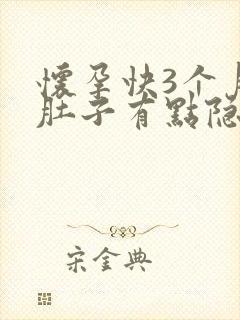 懷孕快3个
肚子有點隐
宋金典